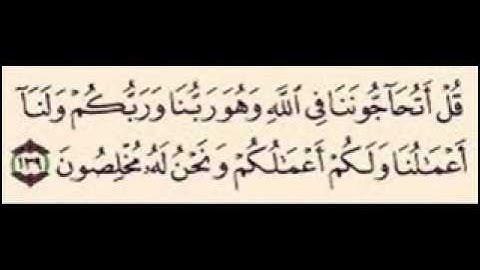 قُلْ أَتُحَآجُّونَنَا فِي ٱللَّهِ وَهُوَ رَبُّنَا وَرَبُّكُمْ وَلَنَآ
أَعْمَـٰلُنَا وَلَكُمْ أَعْمَـٰلُكُمْ وَنَحْنُ لَهُۥ مُخْلِصُونَ ١٣٩